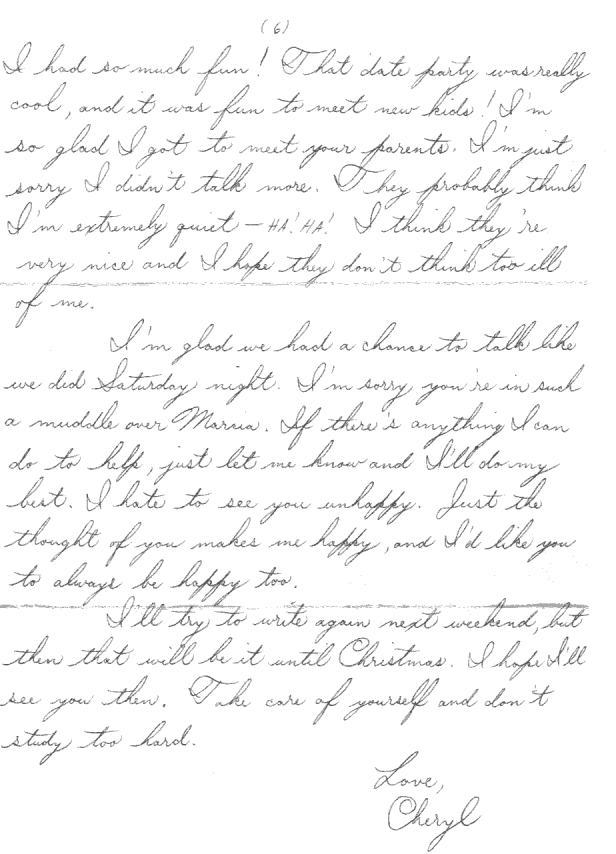 (6)
I had so much fun! That date party was really
cool, and it was fun to meet new kids! I'm
so glad I got to meet your parents. I'm just
sorry I didn't talk more. They probably think
I'm extremely quiet – HA! HA! I think they're
very nice and I hope they don't think too ill
of me.
I'm glad we had a chance to talk like
we did Saturday night. I'm sorry you're in such
a muddle over Marcia. If there's anything I can
do to help, just let me know and I'll do my
best. I hate to see you unhappy. Just the
thought of you makes me happy, and I'd like you
to always be happy too.
I'll try to write again next weekend, but
then that will be it until Christmas. I hope I'll
see you then. Take care of yourself and don't
study too hard.
Love,
Cheryl